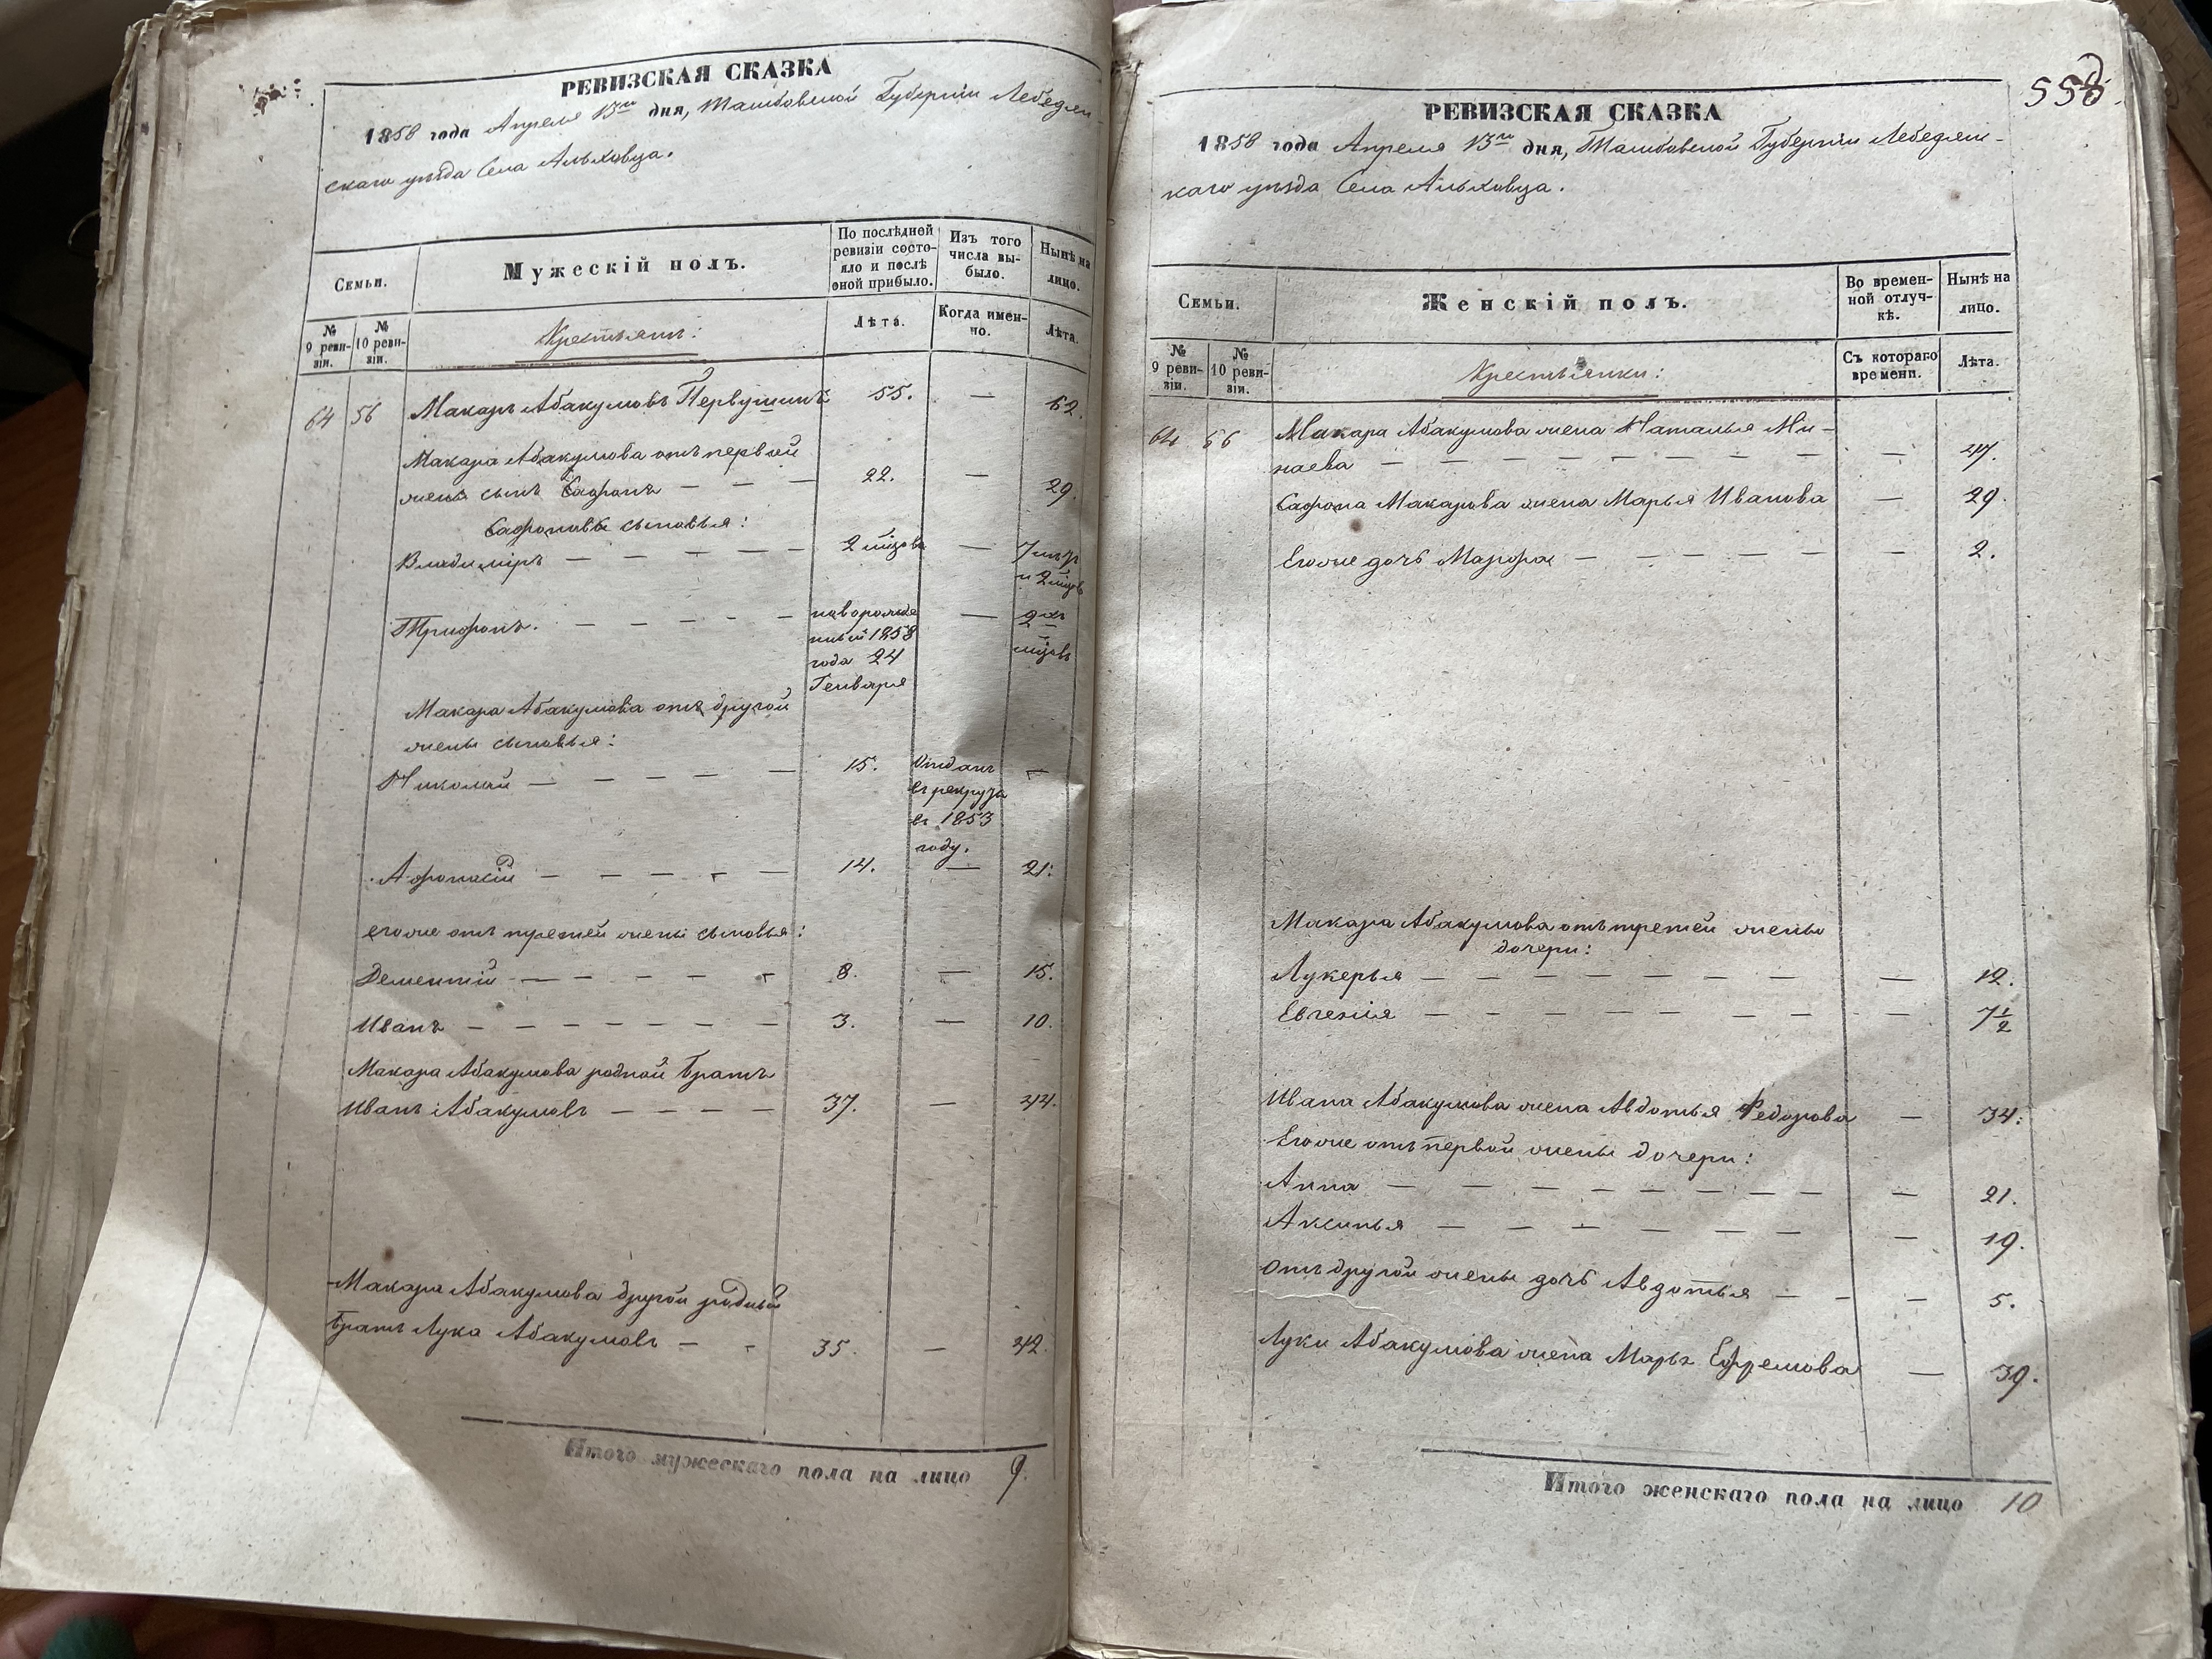 РЕВИЗСКАЯ СКАЗКА
1858 года Апреля 13го дня, Тамбовской Губернiи Лебедян-
скаго уѣзда Села Альховца.
Семьи.
Мужескiй полъ.
По послѣдней ревизiи состо-яло и послѣ оной прибыло.
Изъ того числа вы-было.
Нынѣ на лицо.
№ 9 реви-зiи.
№ 10 реви-зiи.
Крестьянъ:
Лѣта.
Когда имен-но.
Лѣта.
64 56 Макаръ Абакумовъ Первушинъ 55. — 62.
Макара Абакумова отъ первой
жены сынъ Сафонъ — — — 22. — 29.
Сафоновы сыновья:
Владимiръ — — — — — 2 мцовъ — 7 лѣтъ
и 2 мцовъ
Трифонъ. — — — — — новорожде — 2хъ
нный 1858 мцовъ
года 24
Генваря
Макара Абакумова отъ другой
жены сыновья:
Николай — — — — — 15. Отданъ —
въ рекруты
въ 1853
году.
Афонасiй — — — — — 14. — 21.
егоже отъ третей жены сыновья:
Дементiй — — — — — 8. — 15.
Иванъ — — — — — — — 3. — 10.
Макара Абакумова родной братъ
Иванъ Абакумовъ — — — — 37. — 44.
Макара Абакумова другой родной
братъ Лука Абакумовъ — - 35. — 42.
Итого мужескаго пола на лицо 9.
558
РЕВИЗСКАЯ СКАЗКА
1858 года Апреля 13го дня, Тамбовской Губернiи Лебедян-
скаго уѣзда Села Альховца.
Семьи.
Женскiй полъ.
Во времен-ной отлуч-кѣ.
Нынѣ на лицо.
№ 9 реви-зiи.
№ 10 реви-зiи.
Крестьянки:
Съ котораго времени.
Лѣта.
64 56 Макара Абакумова жена Наталья Ми-
наева — — — — — — — — — 47.
Сафона Макарова жена Марья Иванова — 29.
Егоже дочь Марфа — — — — — — 2.
Макара Абакумова отъ третей жены
дочери:
Лукерья — — — — — — — — 12.
Евгенiя — — — — — — — - 7 1/2
Ивана Абакумова жена Авдотья Федорова — 34.
Егоже отъ первой жены дочери:
Анна — — — — — — — — — 21.
Аксинья — — — — — — — — 19.
Отъ другой жены дочь Авдотья — — — 5.
Луки Абакумова жена Марья Ефремова — 39.
Итого женскаго пола на лицо 10